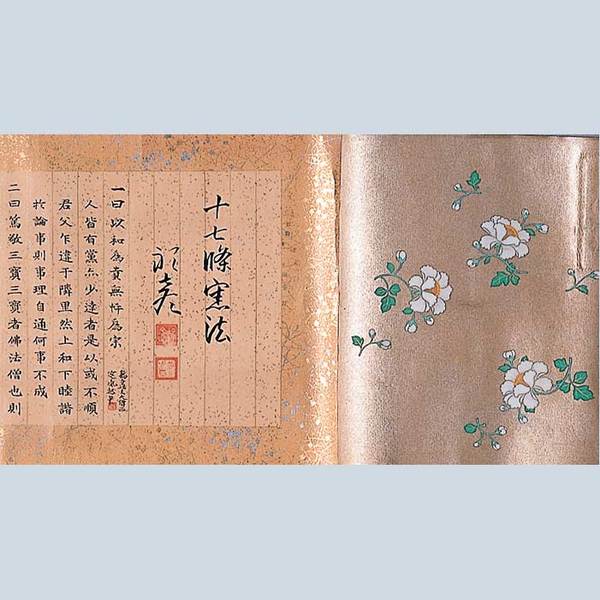 十七條憲法
一曰以和為貴無忤為宗
人皆有黨亦少達者是以或不順
君父乍違于隣里然上和下睦諧
於論事則事理自通何事不成
二曰篤敬三寶三寶者佛法僧也則